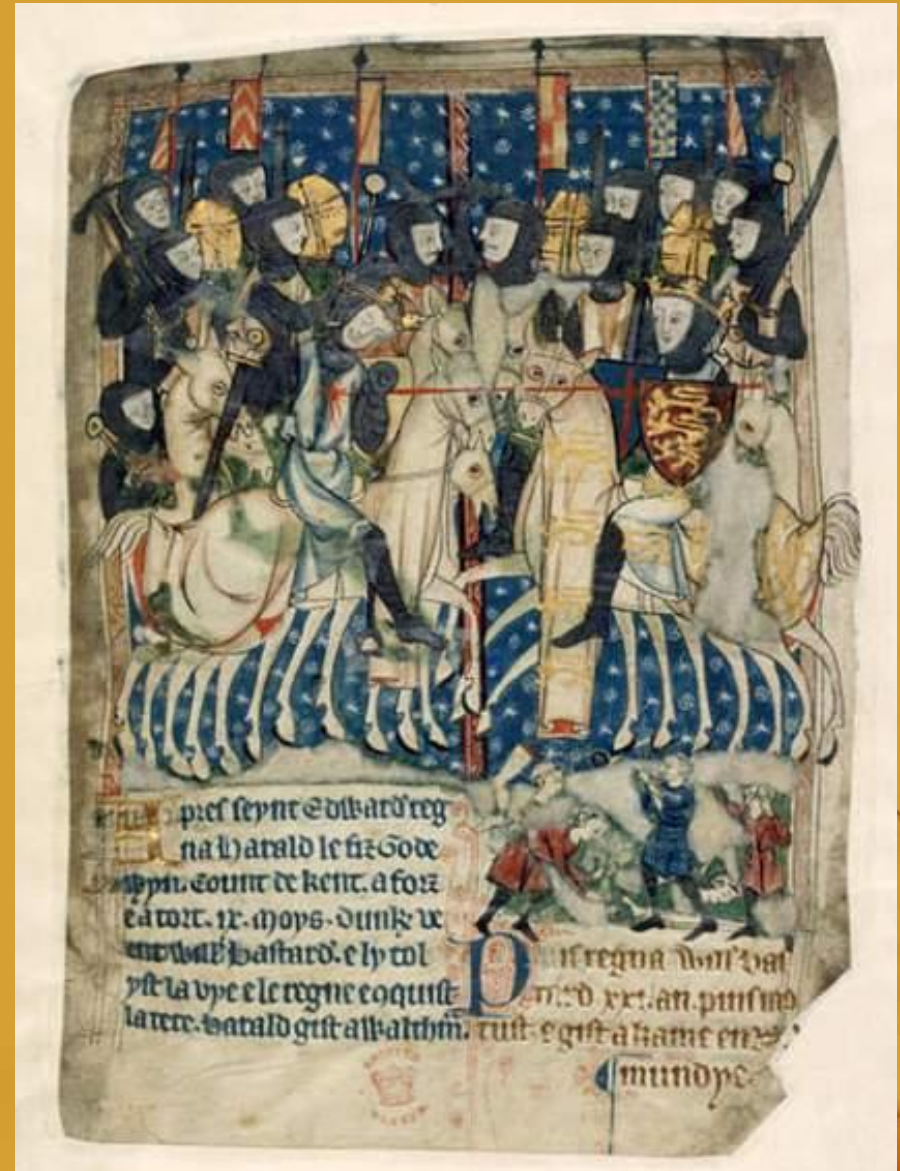 pres seynt Edward reg
na Harald le fiz Gode
wyn. Count de kent. a forz
e a tort. ix. moys. Dunk v
ent Will' bastard. e ly tol
yst la vye e le regne conquist
la tere. Harald gist a Walthm.
Puis regna Will' bas
tard xxi. an. puis mo
rust. e gist a kame en
mundye